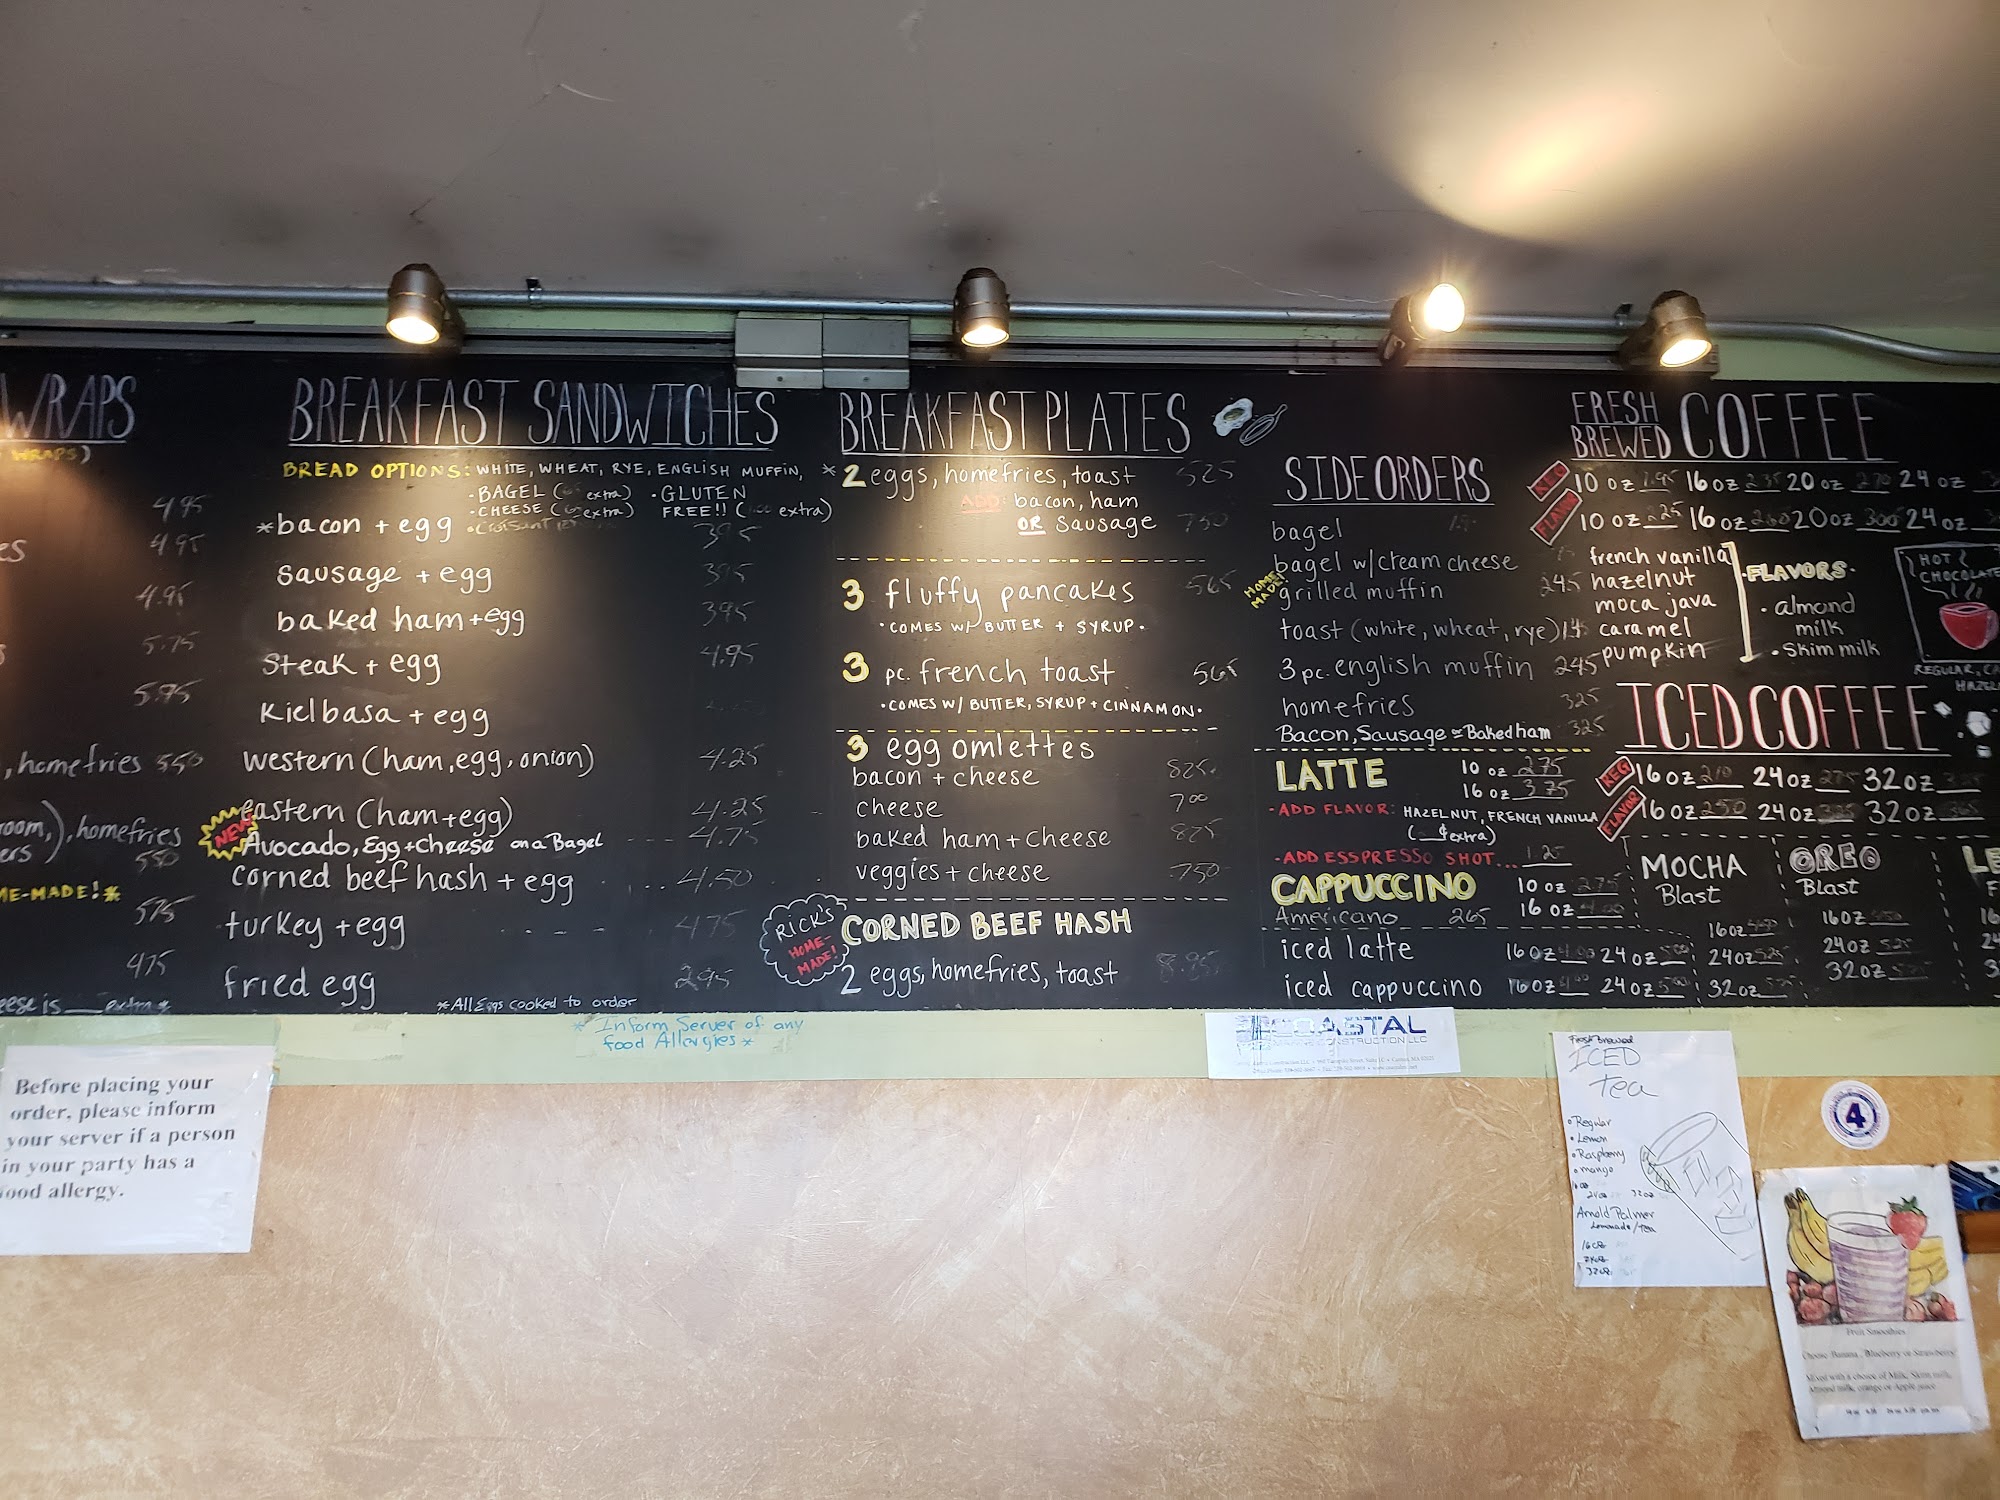 WRAPS
WRAPS)
4.95
es 4.95
4.95
5.75
5.95
, homefries 550
room,), homefries
ers 550
ME-MADE!*
575
475
eese is ___ extra *
BREAKFAST SANDWICHES
BREAD OPTIONS: WHITE, WHEAT, RYE, ENGLISH MUFFIN,
• BAGEL ( extra) • GLUTEN
• CHEESE ( extra) FREE!! ( extra)
• Croisant
*bacon + egg 395
sausage + egg 395
baked ham + egg 395
Steak + egg 4.95
Kielbasa + egg
western (ham, egg, onion) 4.25
eastern (ham + egg) 4.25
NEW Avocado, Egg + Cheese on a Bagel --- 4.75
corned beef hash + egg .... 4.50
turkey + egg 475
fried egg 295
*All Eggs cooked to order
* Inform Server of any
food Allergies *
BREAKFAST PLATES
* 2 eggs, homefries, toast 525
ADD: bacon, ham
OR sausage 750
3 fluffy pancakes 565
• COMES W/ BUTTER + SYRUP •
3 pc. french toast 565
• COMES W/ BUTTER, SYRUP + CINNAMON •
3 egg omlettes
bacon + cheese 825
cheese 700
baked ham + cheese 825
veggies + cheese 750
RICK'S
HOME-
MADE!
CORNED BEEF HASH
2 eggs, homefries, toast 8.95
SIDE ORDERS
bagel
bagel w/cream cheese
HOME
MADE!
grilled muffin 245
toast (white, wheat, rye)
3 pc. english muffin 245
homefries 325
Bacon, Sausage or Baked ham 325
LATTE 10 oz 2.75
16 oz 3.75
• ADD FLAVOR: HAZELNUT, FRENCH VANILLA
( extra)
• ADD ESSPRESSO SHOT... 1.25
CAPPUCCINO 10 oz 2.75
16 oz
Americano 265
iced latte 16 oz 24 oz
iced cappuccino 16 oz 24 oz
FRESH
BREWED COFFEE
REG 10 oz 1.95 16 oz 235 20 oz 270 24 oz
FLAVOR 10 oz 225 16 oz 20 oz 300 24 oz
french vanilla
hazelnut
moca java
caramel
pumpkin
• FLAVORS •
• almond
milk
• skim milk
HOT
CHOCOLATE
REGULAR,
HAZEL
ICED COFFEE
REG 16 oz 24 oz 275 32 oz
FLAVOR 16 oz 250 24 oz 32 oz
MOCHA
Blast
16 oz
24 oz 525
32 oz
OREO
Blast
16 oz
24 oz 525
32 oz
LE
Before placing your
order, please inform
your server if a person
in your party has a
food allergy.
COASTAL
CONSTRUCTION LLC
Fresh Brewed
ICED
Tea
• Regular
• Lemon
• Raspberry
• mango
16 oz
24 oz 32 oz
Arnold Palmer
Lemonade/tea
16 oz
24 oz
32 oz
4
Fruit Smoothies
Choose Banana, Blueberry or Strawberry
Mixed with a choice of Milk, Skim milk,
Almond milk, orange or Apple juice